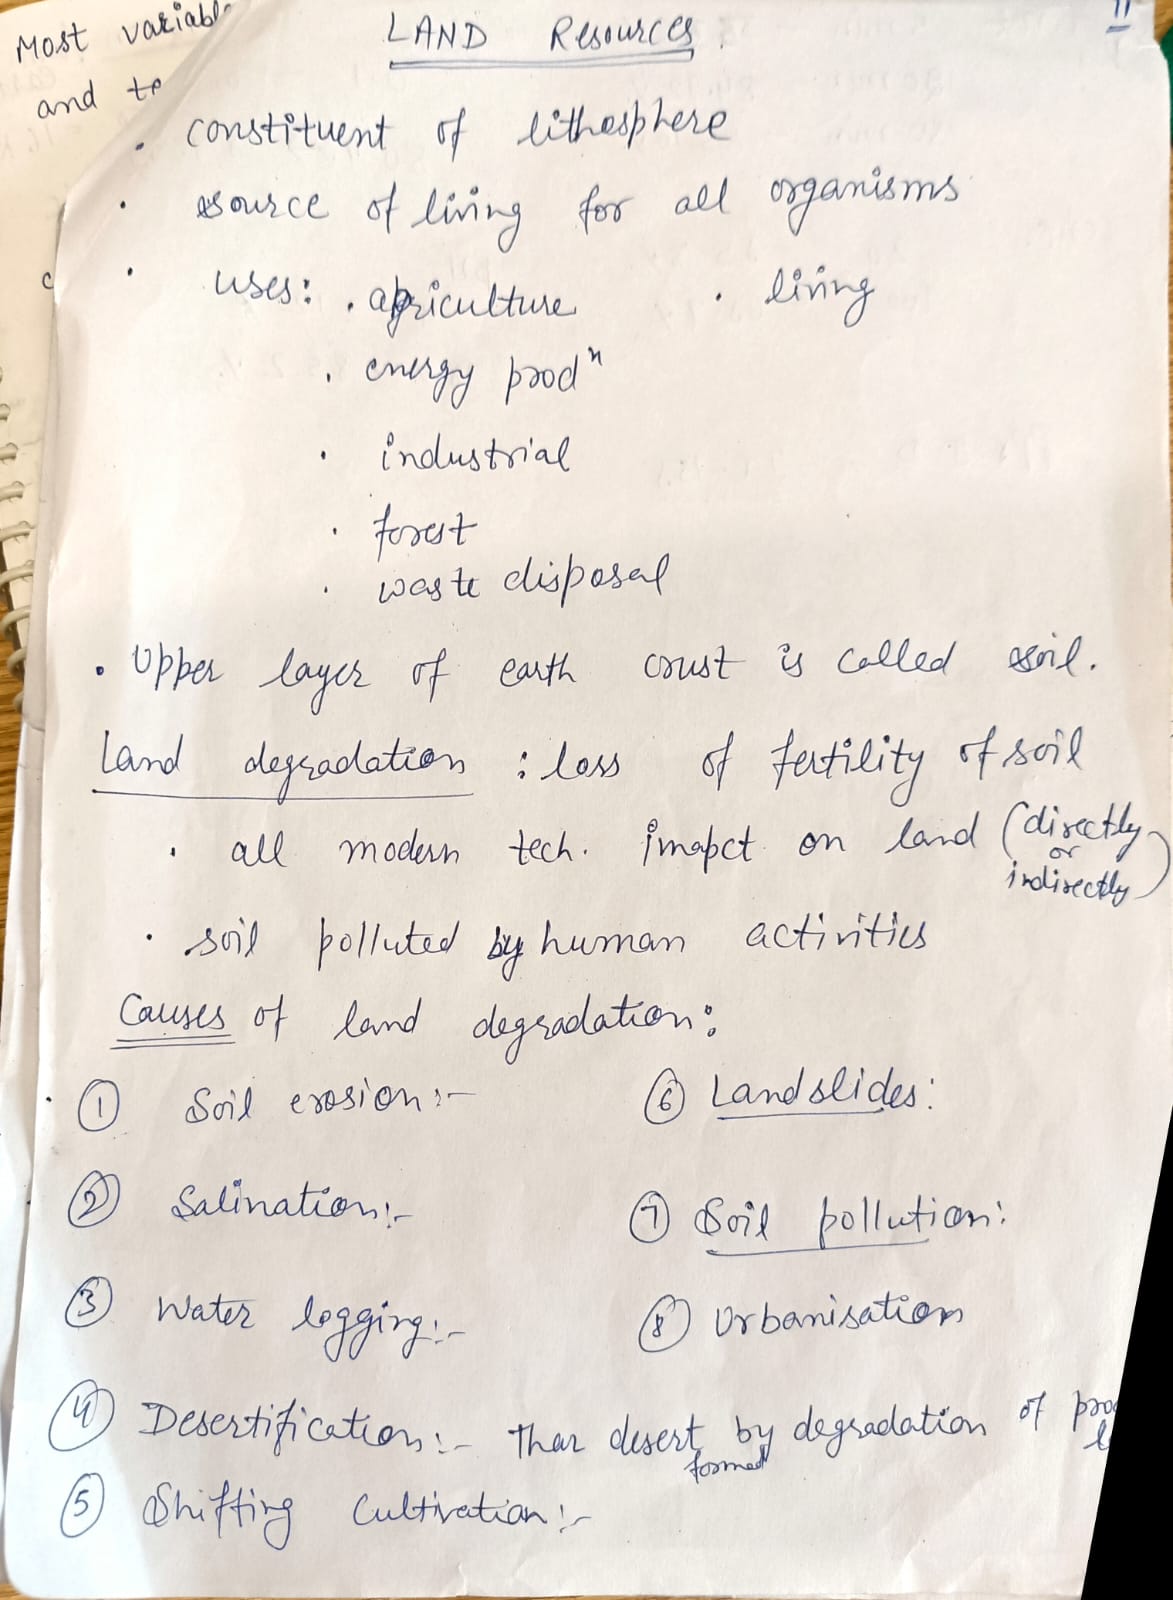 Most variabl
and te
LAND Resources.
11
• constituent of lithosphere
• source of living for all organisms
• uses: • agriculture • living
• energy prodⁿ
• industrial
• forest
• waste disposal
• Upper layer of earth crust is called soil.
Land degradation : loss of fertility of soil
• all modern tech. imapct on land (directly or indirectly)
• soil polluted by human activities
Causes of land degradation:
① Soil erosion:-
⑥ Landslides:
② Salination:-
⑦ Soil pollution:
③ Water logging:-
⑧ Urbanisation
④ Desertification:- Thar desert formed by degradation of
⑤ Shifting Cultivation:-